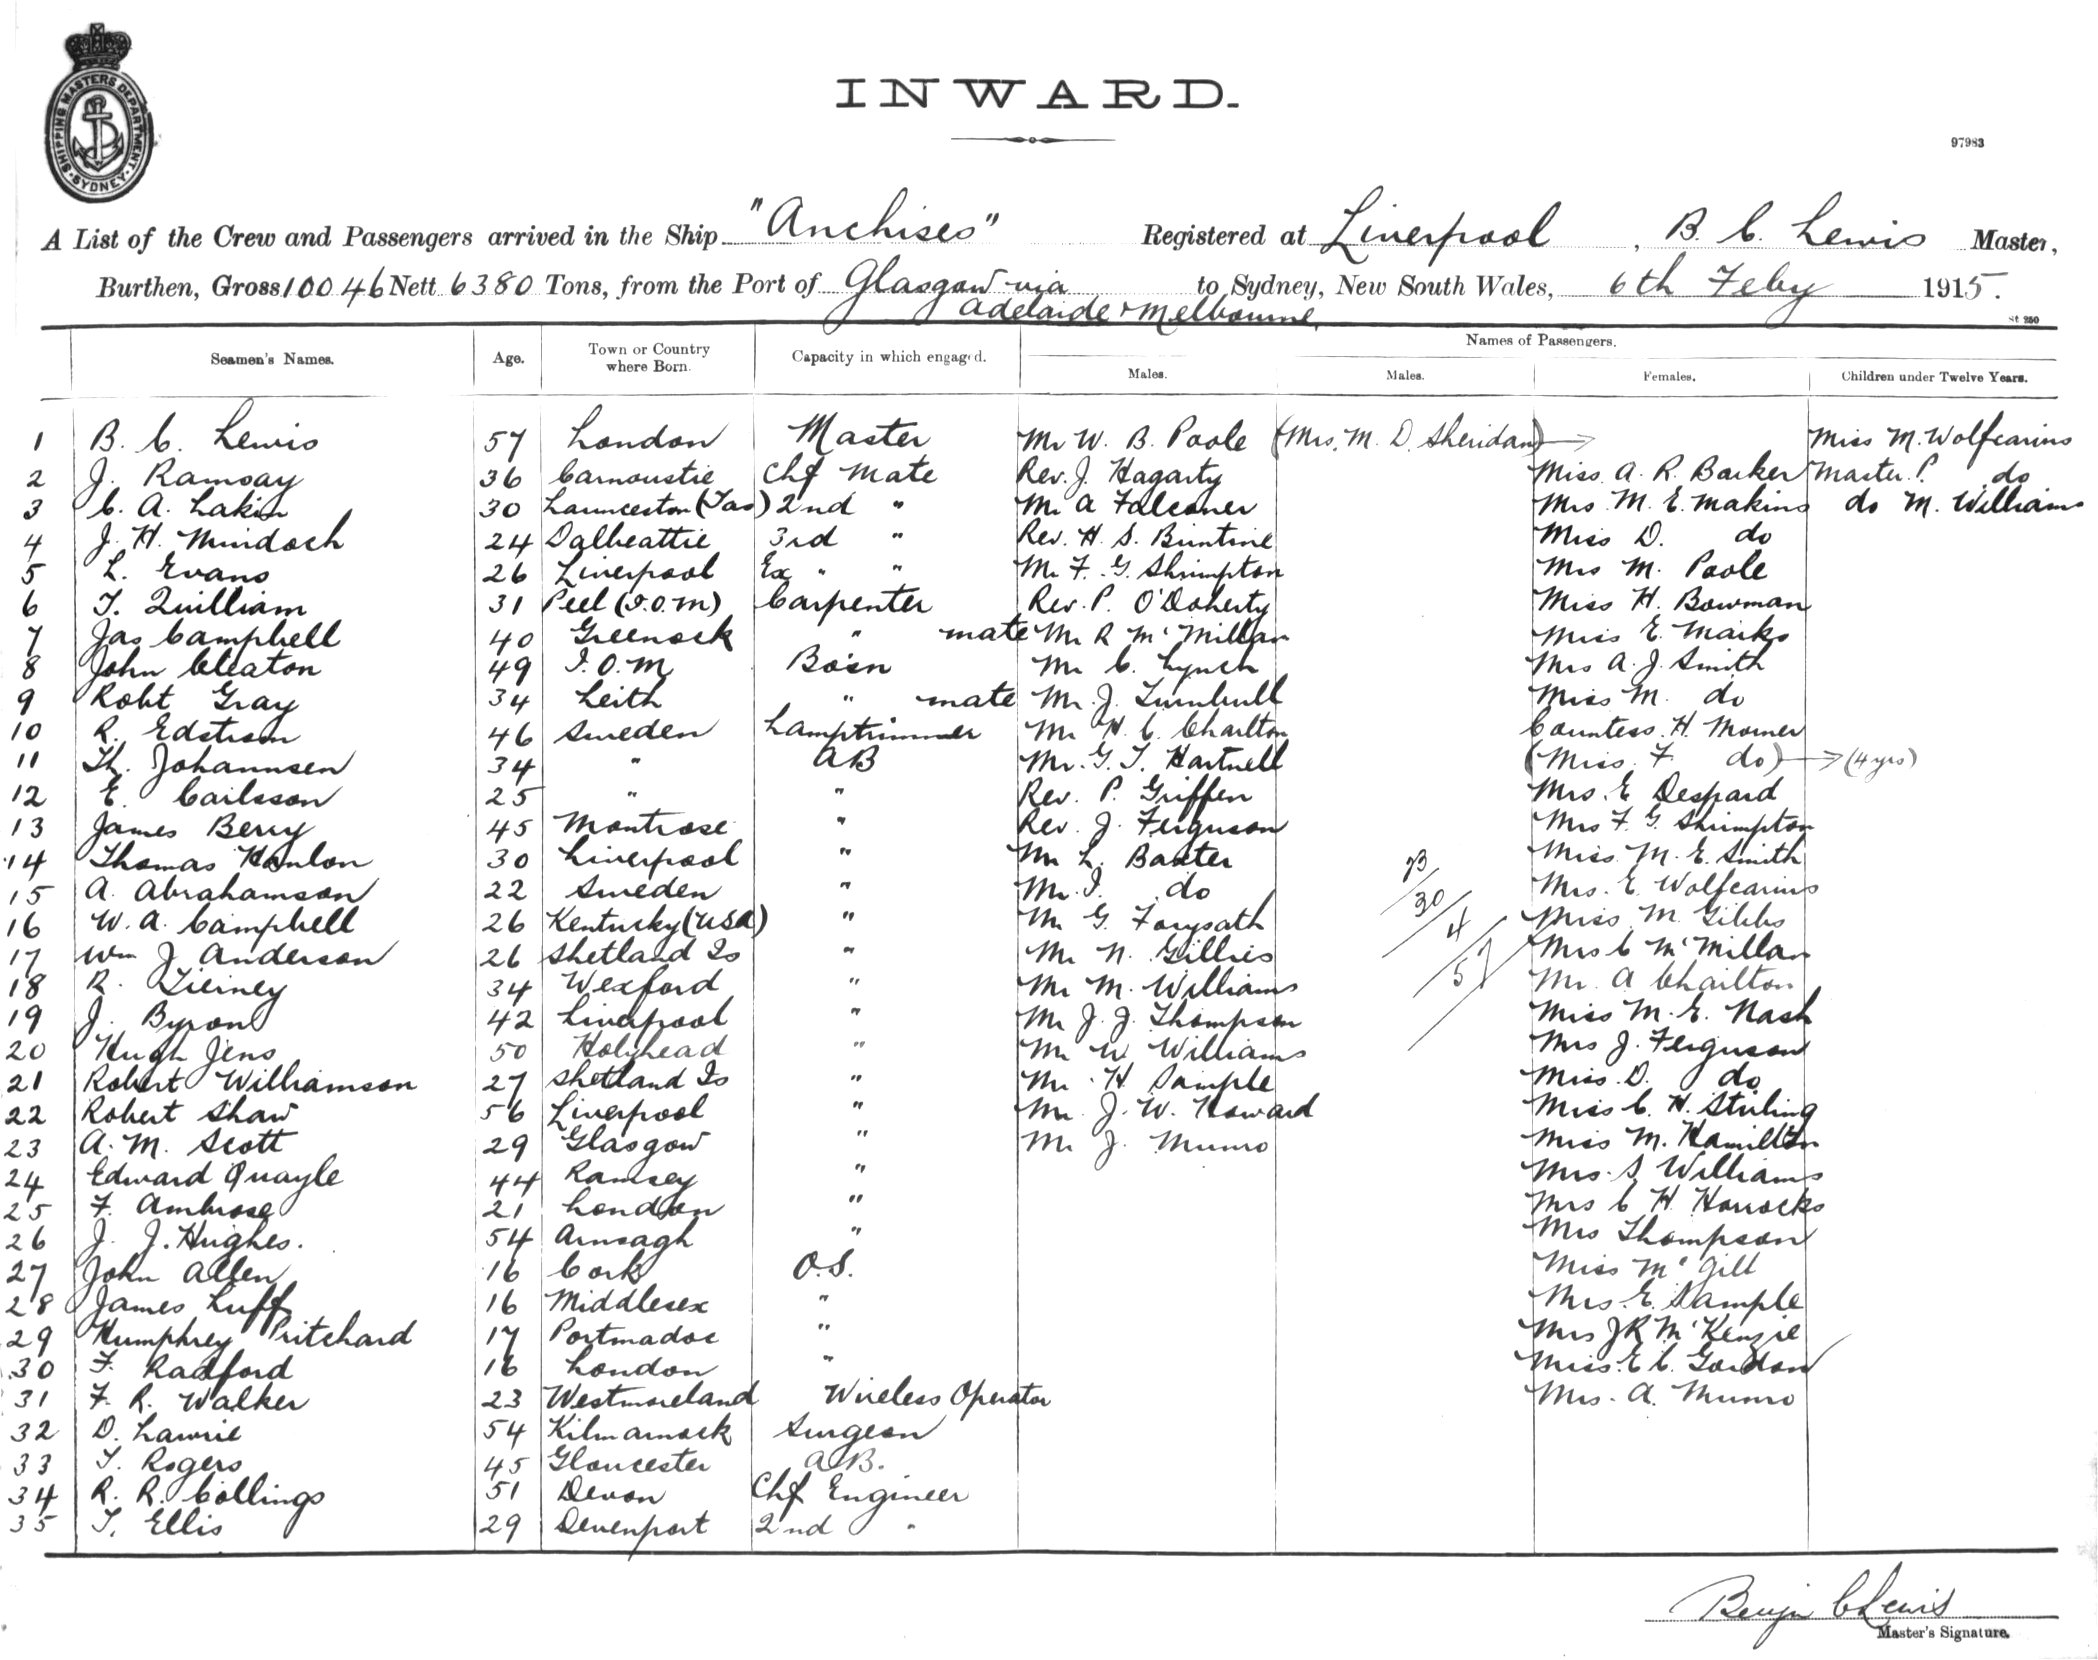 SHIPPING MASTERS DEPARTMENT. SYDNEY
INWARD.
97983
A List of the Crew and Passengers arrived in the Ship "Anchises" Registered at Liverpool, B. C. Lewis Master,
Burthen, Gross 10046 Nett 6380 Tons, from the Port of Glasgow via to Sydney, New South Wales, 6th Feby 1915.
Adelaide & Melbourne
St 250
Seamen's Names. Age. Town or Country where Born. Capacity in which engaged. Names of Passengers.
Males. Males. Females. Children under Twelve Years.
1 B. C. Lewis 57 London Master Mr W. B. Poole (Mrs. M. D. Sheridan) Miss M. Wolfcarius
2 J. Ramsay 36 Carnoustie Chf Mate Rev. J. Hagarty Miss A. R. Barker Master P. do
3 C. A. Lakin 30 Launceston (Tas) 2nd " Mr A Falconer Mrs M. E. Makins do M. Williams
4 J. H. Murdoch 24 Dalbeattie 3rd " Rev. H. S. Buntine Miss D. do
5 L. Evans 26 Liverpool Ex " " Mr F. G. Shrimpton Mrs M. Poole
6 T. Quilliam 31 Peel (I.O.M) Carpenter Rev. P. O'Doherty Miss H. Bowman
7 Jas Campbell 40 Greenock " mate Mr R McMillan Miss E. Marks
8 John Cleaton 49 I.O.M Bosn Mr C. Lynch Mrs A. J. Smith
9 Robt Gray 34 Leith " mate Mr J. Turnbull Miss M. do
10 R. Edstrom 46 Sweden Lamptrimmer Mr H. C. Charlton Countess H. Morner
11 Th. Johannsen 34 " AB Mr. G. T. Hartnell (Miss F do) (4 yrs)
12 E. Carlsson 25 " " Rev. P. Griffen Mrs. E Despard
13 James Berry 45 Montrose " Rev. J. Ferguson Mrs F. G. Shrimpton
14 Thomas Hanlon 30 Liverpool " Mr L. Baxter 23 Miss M. E. Smith
15 A. Abrahamson 22 Sweden " Mr. I. do 30 Mrs. E. Wolfcarius
16 W. A. Campbell 26 Kentucky (USA) " Mr G. Forysath 4 Miss M Gibbs
17 Wm J Anderson 26 Shetland Is " Mr N. Gillies 57 Mrs C McMillan
18 R. Tierney 34 Wexford " Mr M. Williams Mr. A Charlton
19 J. Byron 42 Liverpool " Mr J. J. Thompson Miss M. E. Nash
20 Hugh Jens 50 Holyhead " Mr W Williams Mrs J. Ferguson
21 Robert Williamson 27 Shetland Is " Mr. H Sample Miss. D. do
22 Robert Shaw 56 Liverpool " Mr. J. W. Howard Miss C. H. Stirling
23 A. M. Scott 29 Glasgow " Mr J. Munro Miss M. Hamilton
24 Edward Quayle 44 Ramsey " Mrs. S Williams
25 F. Ambrose 21 London " Mrs C H Horrocks
26 J. J. Hughes. 54 Armagh " Mrs Thompson
27 John Allen 16 Cork O.S. Miss McGill
28 James Luff 16 Middlesex " Mrs. E. Sample
29 Humphrey Pritchard 17 Portmadoc " Mrs J R McKenzie
30 F. Radford 16 London " Miss. E C. Gordon
31 F. R. Walker 23 Westmoreland Wireless Operator Mrs. A. Munro
32 D. Lawrie 54 Kilmarnock Surgeon
33 T. Rogers 45 Gloucester A.B.
34 R. R. Collings 51 Devon Chf Engineer
35 T. Ellis 29 Devenport 2nd "
Benjn C Lewis
Master's Signature.